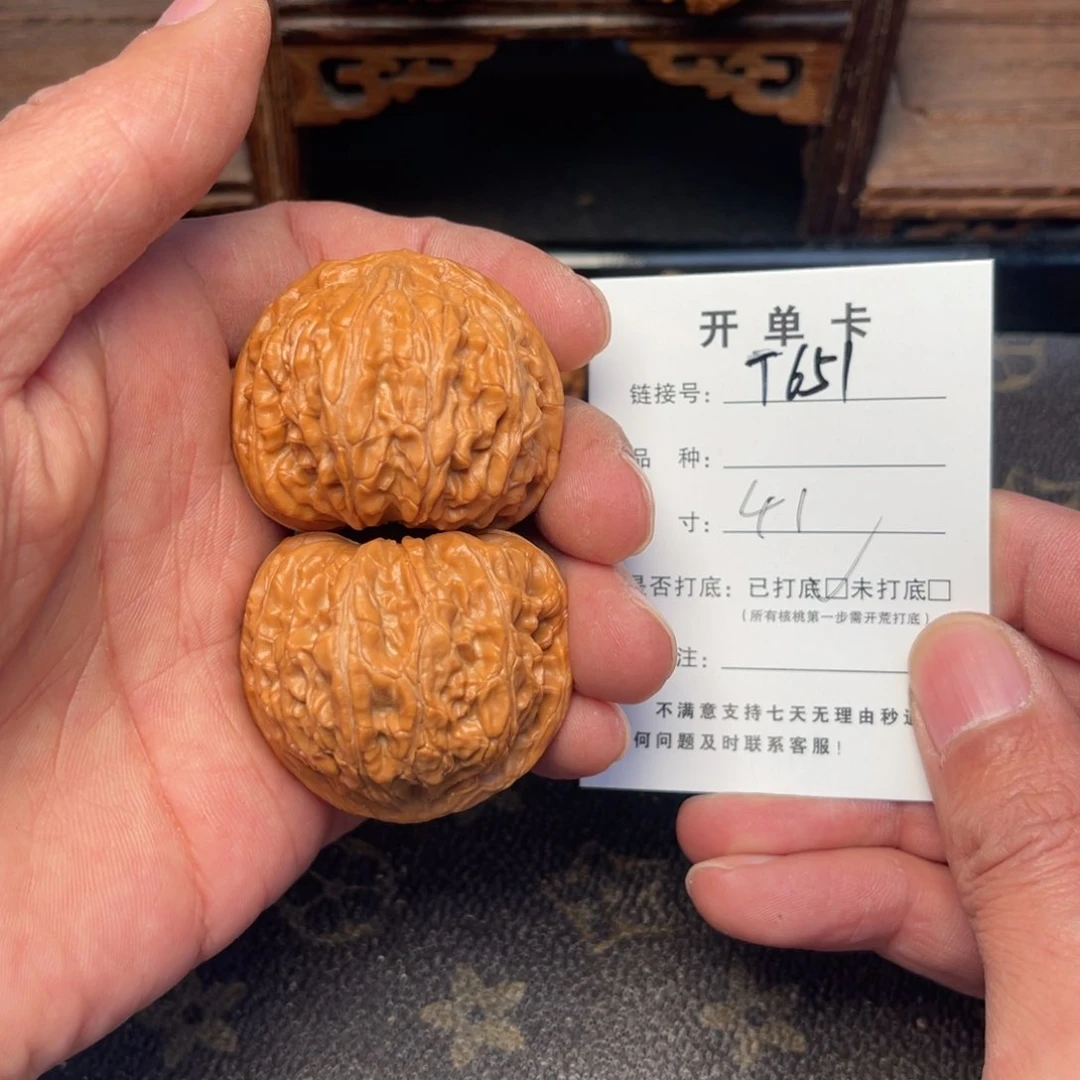 开单卡
链接号: T651
品 种:
寸: 41
是否打底: 已打底☑未打底□
(所有核桃第一步需开荒打底)
注:
不满意支持七天无理由秒退
何问题及时联系客服!